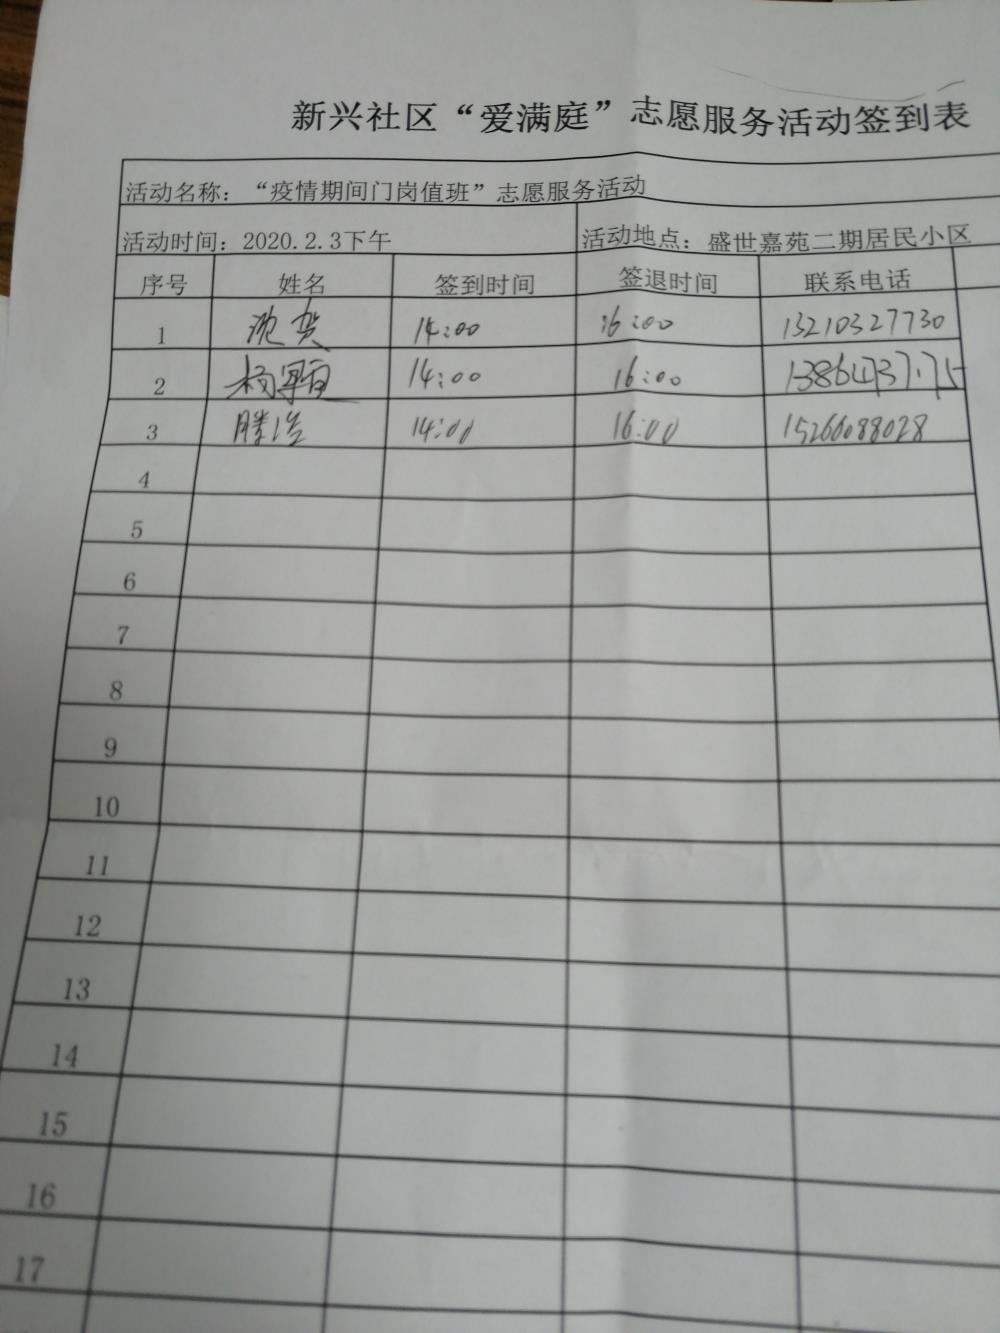 新兴社区“爱满庭”志愿服务活动签到表
活动名称：“疫情期间门岗值班”志愿服务活动
活动时间：2020.2.3下午 活动地点：盛世嘉苑二期居民小区
序号 姓名 签到时间 签退时间 联系电话
1 沈贺 14:00 16:00 13210327730
2 杨 14:00 16:00
3 滕浩 14:00 16:00 15266088028
4
5
6
7
8
9
10
11
12
13
14
15
16
17